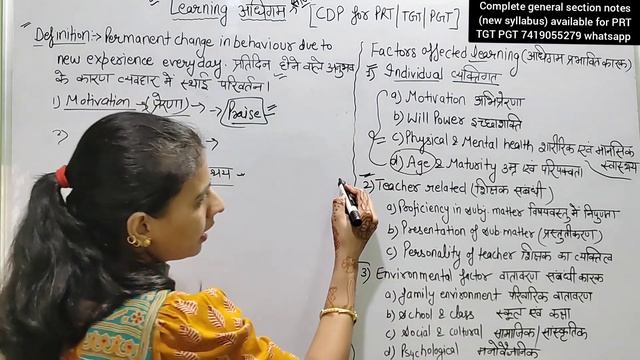 Complete general section notes
(new syllabus) available for PRT
TGT PGT 7419055279 whatsapp
Learning अधिगम [CDP for PRT/TGT/PGT]
Definition:→ Permanent change in behaviour due to
new experience everyday. प्रतिदिन होने वाले अनुभव
के कारण व्यवहार में स्थाई परिवर्तन।
1) Motivation → (प्रेरणा) → → Praise
2)
Factors affected Learning (अधिगम प्रभावित कारक)
1) Individual व्यक्तिगत
a) Motivation अभिप्रेरणा
b) Will Power इच्छाशक्ति
c) Physical & Mental health शारीरिक एवं मानसिक स्वास्थ्य
d) Age & Maturity उम्र एवं परिपक्वता
2) Teacher related (शिक्षक संबंधी)
a) Proficiency in subj. matter विषयवस्तु में निपुणता
b) Presentation of sub matter (प्रस्तुतीकरण)
c) Personality of teacher शिक्षक का व्यक्तित्व
3) Environmental factor वातावरण संबंधी कारक
a) family environment पारिवारिक वातावरण
b) School & class स्कूल एवं कक्षा
c) Social & cultural सामाजिक/सांस्कृतिक
d) Psychological मनोवैज्ञानिक